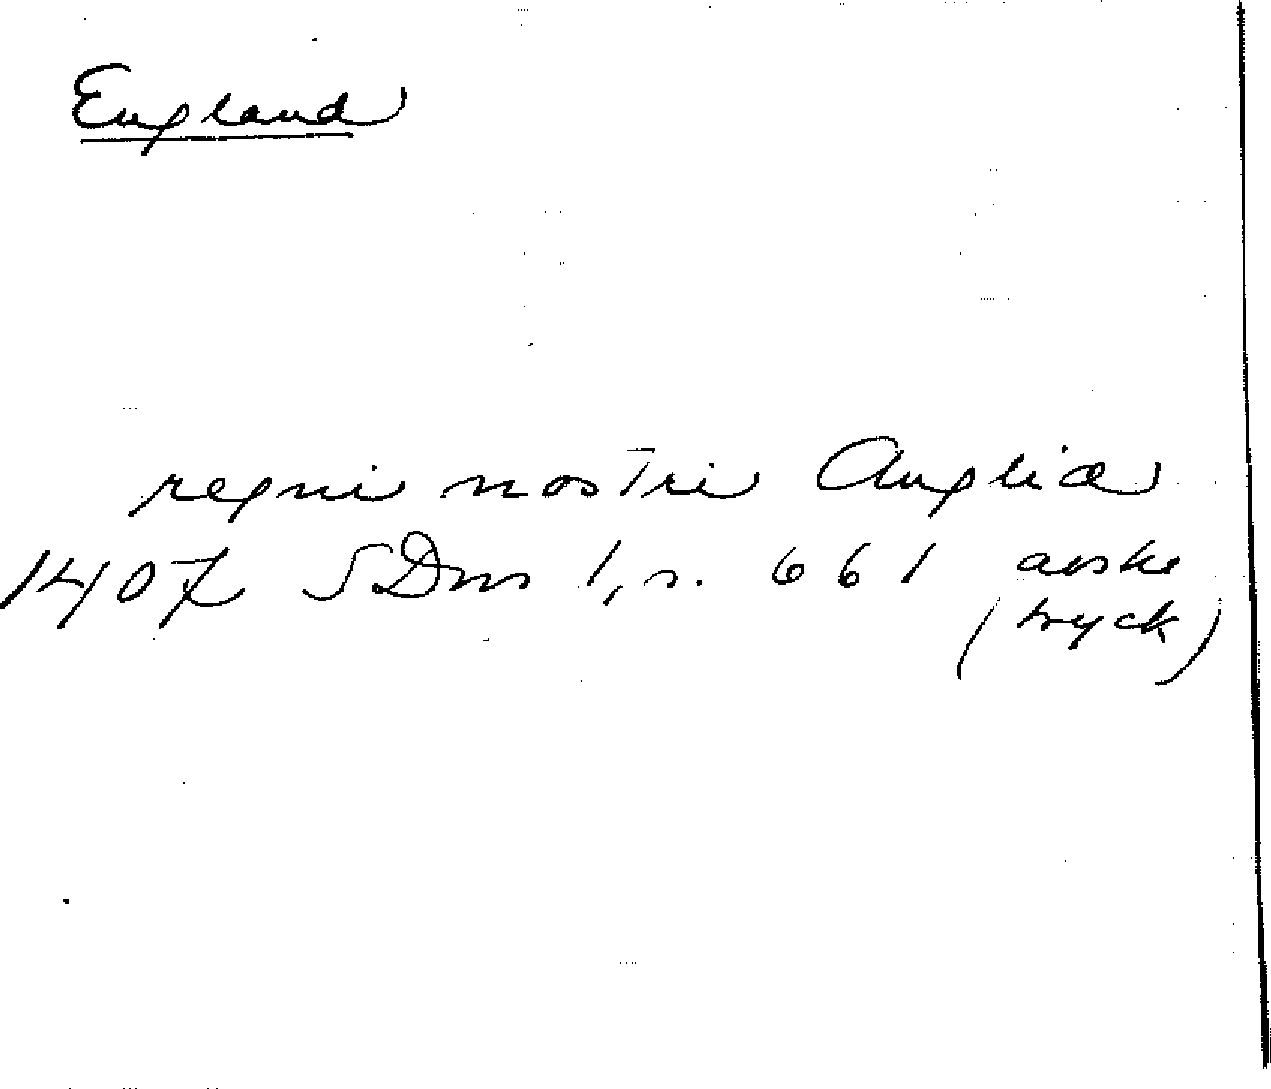 England
regni nostri Angliæ
1407 SDns 1, s. 661 avskr
(tryck)